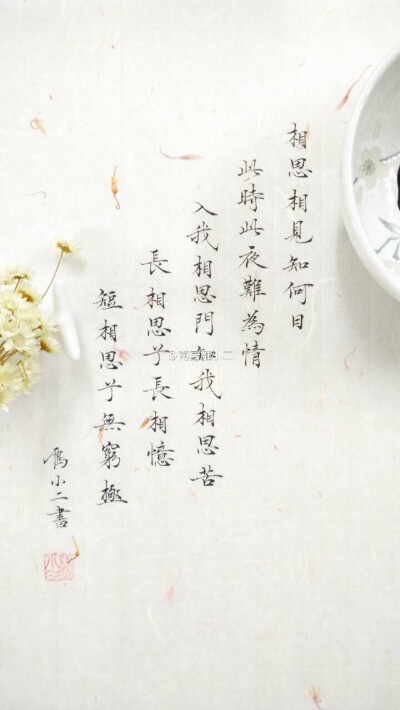 相思相見知何日
此時此夜難為情
入我相思門知我相思苦
長相思兮長相憶
短相思兮無窮極
小二書